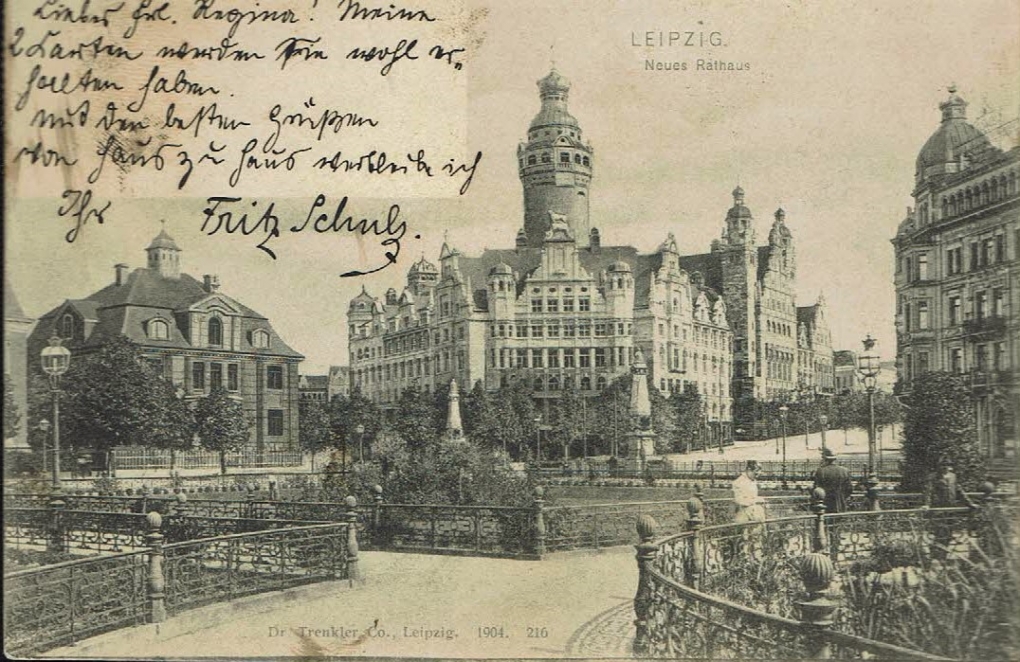 Liebes Frl. Regina! Meine
2 Karten werden Sie wohl er-
halten haben.
Mit den besten Grüßen
von Haus zu Haus verbleibe ich
Ihr Fritz Schulz.
LEIPZIG.
Neues Rathaus
Dr. Trenkler Co., Leipzig. 1904. 216